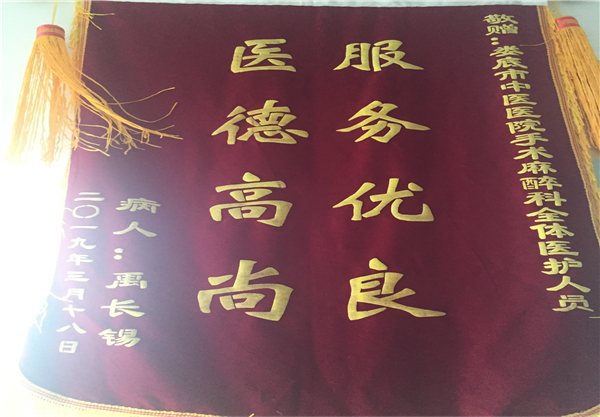 敬赠：娄底市中医医院手术麻醉科全体医护人员
服务优良
医德高尚
病人：禹长锡
二〇一九年三月十八日